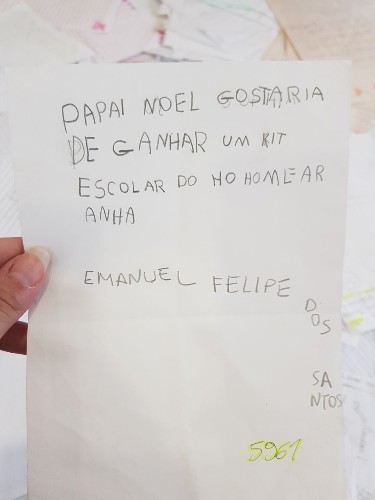 PAPAI NOEL GOSTARIA
DE GANHAR UM KIT
ESCOLAR DO HOHOMLEAR
ANHA
EMANUEL FELIPE
D
OS
SA
NTOS
5961